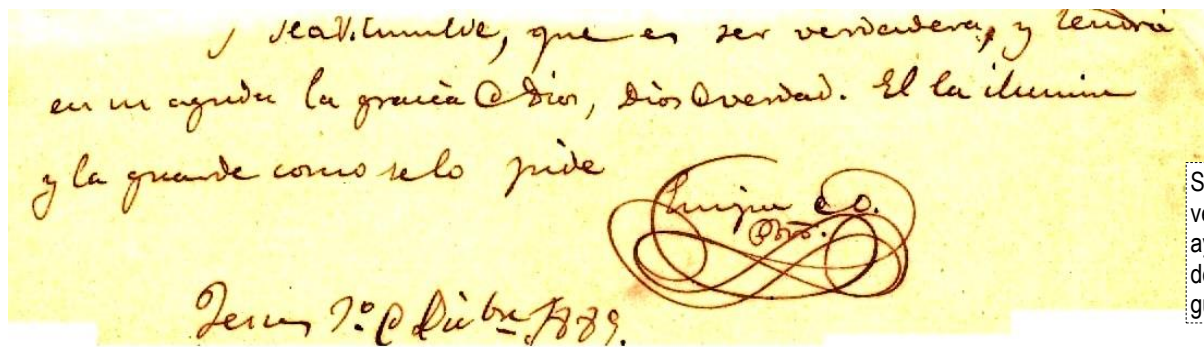 y sea V. humilde, que es ser verdadera, y tendrá
en su ayuda la gracia @ Dios, Dios @ verdad. El la ilumine
y la guarde como se lo pide
@ O.
Pbro.
@ Dicbre 1889.
S
ve
ay
de
gu